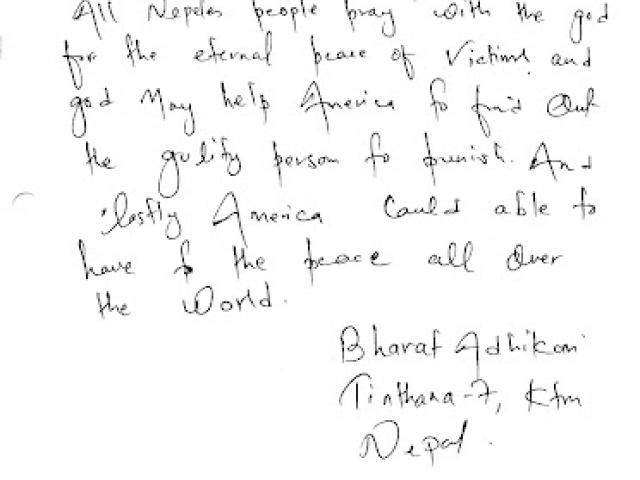 All Nepoles people pray with the god
for the eternal peace of Victims and
god May help America to find Out
the gulity person to punish. And
lastly America Could able to
have to the peace all Over
the World.
Bharat Adhikari
Tinthana-7, Ktm
Nepal.